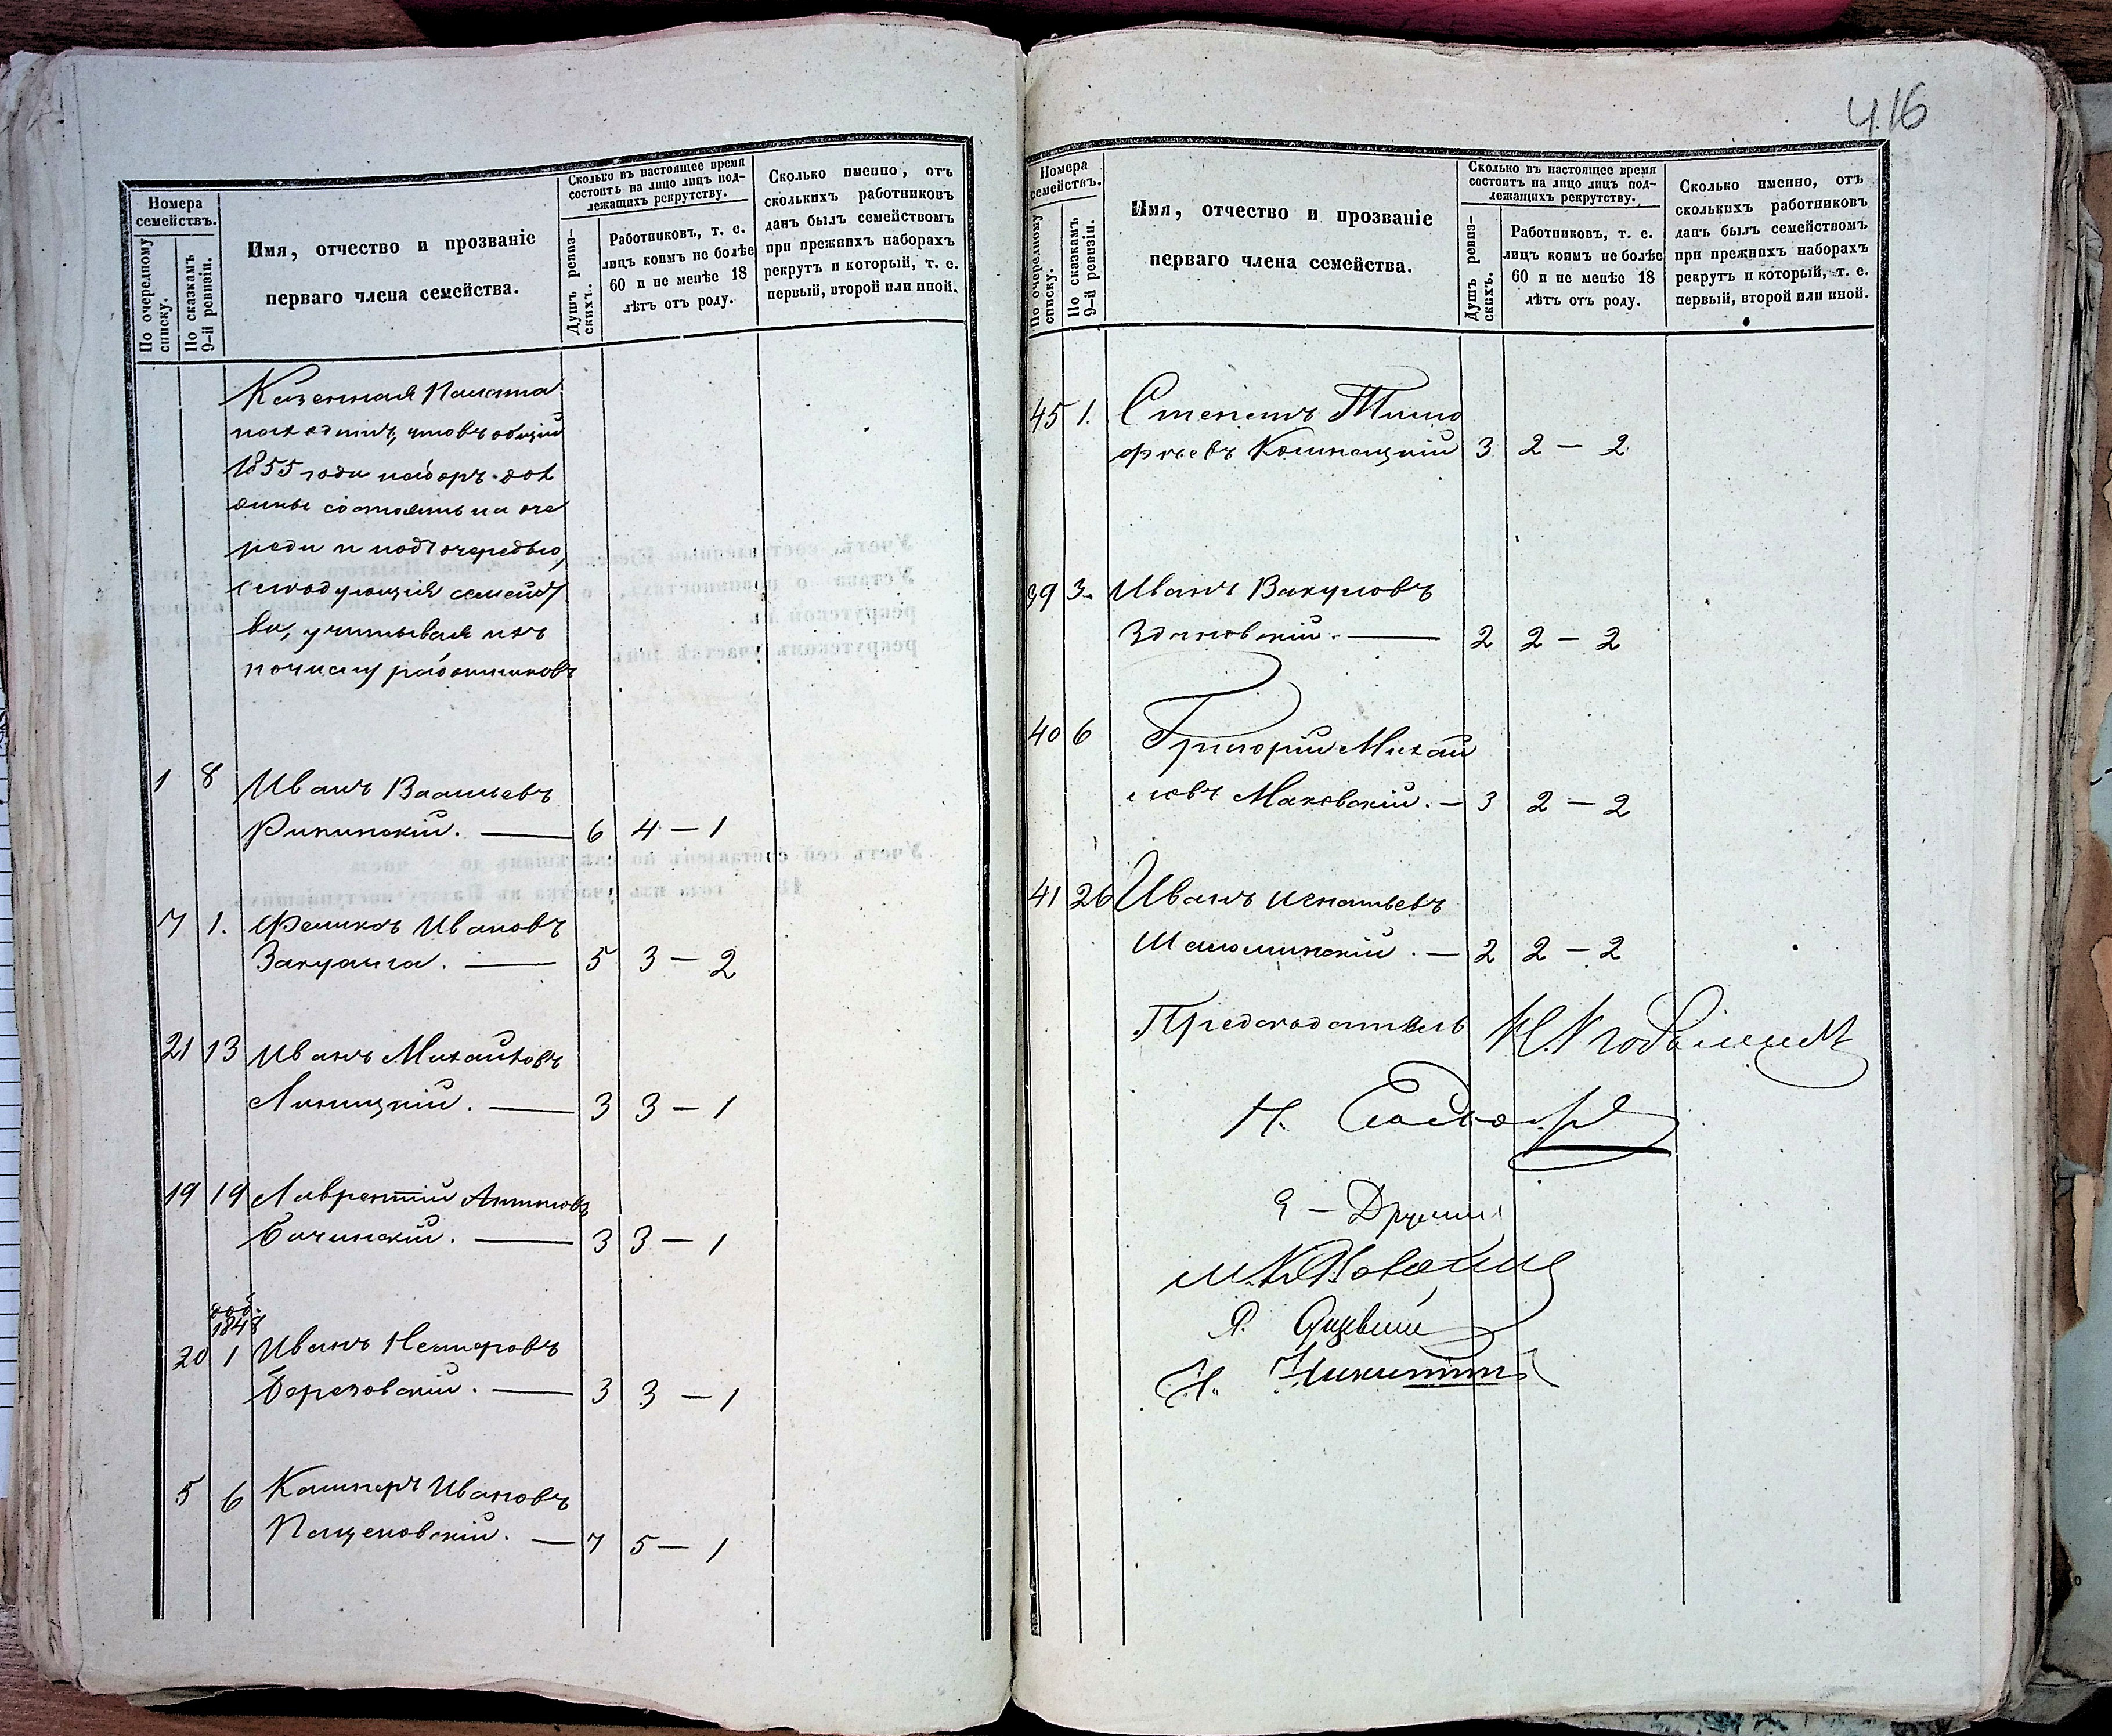 Номера семействъ.
По очередному списку.
По сказкамъ 9-й ревизіи.
Имя, отчество и прозваніе
перваго члена семейства.
Сколько въ настоящее время
состоитъ на лицо лицъ под-
лежащихъ рекрутству.
Душъ ревиз-
скихъ.
Работниковъ, т. е.
лицъ коимъ не болѣе
60 и не менѣе 18
лѣтъ отъ роду.
Сколько именно, отъ
сколькихъ работниковъ
данъ былъ семействомъ
при прежнихъ наборахъ
рекрутъ и который, т. е.
первый, второй или иной.
Казенная Палата
находитъ, что въ общій
1855 года наборъ дол
жны состоять на оче
реди и подъ очередью,
слѣдующія семейст
ва, учитывая ихъ
по числу работниковъ
1 8 Иванъ Васильевъ
6 4 — 1
7 1. Феликсъ Ивановъ
5 3 — 2
21 13 Иванъ Михайловъ
Линицкій. — 3 3 — 1
19 19 Лаврентій Антоновъ
Бачинскій. — 3 3 — 1
доб.
1848
20 1 Иванъ
Березовскій. — 3 3 — 1
5 6 Касперъ Ивановъ
Пащековскій. — 7 5 — 1
416
Номера
семействъ.
По очередному
списку.
По сказкамъ
9-й ревизіи.
Имя, отчество и прозваніе
перваго члена семейства.
Сколько въ настоящее время
состоитъ на лицо лицъ под-
лежащихъ рекрутству.
Душъ ревиз-
скихъ.
Работниковъ, т. е.
лицъ коимъ не болѣе
60 и не менѣе 18
лѣтъ отъ роду.
Сколько именно, отъ
сколькихъ работниковъ
данъ былъ семействомъ
при прежнихъ наборахъ
рекрутъ и который, т. е.
первый, второй или иной.
45 1. Степанъ Тимо
фѣевъ 3 2 — 2
39 3. Иванъ Вакуловъ
Здановскій. — 2 2 — 2
40 6 Григорій Михай
ловъ Маковскій. — 3 2 — 2
41 26 Иванъ Игнатьевъ
2 2 — 2
Предсѣдатель
Н.
М.
Н. Никитинъ